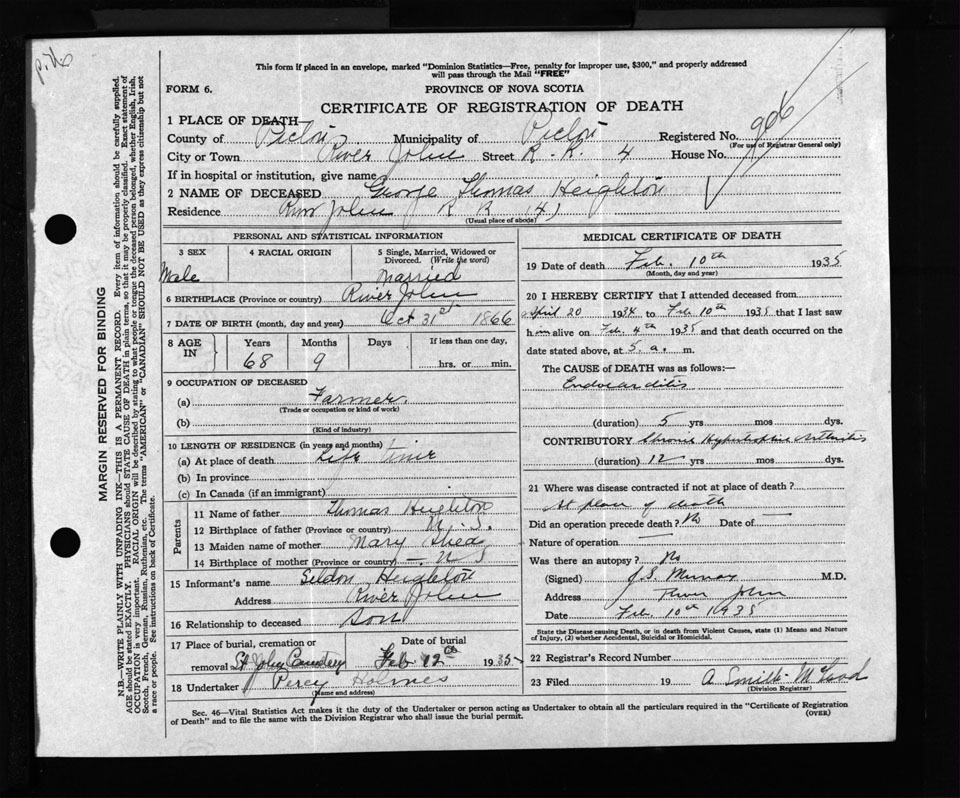 p. 76
This form if placed in an envelope, marked "Dominion Statistics—Free, penalty for improper use, $300," and properly addressed
will pass through the Mail "FREE"
FORM 6.
PROVINCE OF NOVA SCOTIA
CERTIFICATE OF REGISTRATION OF DEATH
1 PLACE OF DEATH—
County of Pictou Municipality of Pictou Registered No. 906
(For use of Registrar General only)
City or Town River John Street R. R. 4 House No.
If in hospital or institution, give name
2 NAME OF DECEASED George Thomas Heighton
Residence River John R R (4)
(Usual place of abode)
PERSONAL AND STATISTICAL INFORMATION
3 SEX 4 RACIAL ORIGIN 5 Single, Married, Widowed or
Divorced. (Write the word)
Male Married
6 BIRTHPLACE (Province or country) River John
7 DATE OF BIRTH (month, day and year) Oct 31st 1866
8 AGE IN Years Months Days If less than one day,
68 9 hrs. or min.
9 OCCUPATION OF DECEASED
(a) Farmer
(Trade or occupation or kind of work)
(b)
(Kind of industry)
10 LENGTH OF RESIDENCE (in years and months)
(a) At place of death Life time
(b) In province
(c) In Canada (if an immigrant)
Parents
11 Name of father Thomas Heighton
12 Birthplace of father (Province or country) N. S.
13 Maiden name of mother Mary Shea
14 Birthplace of mother (Province or country) N S
15 Informant's name Seldon Heighton
Address River John
16 Relationship to deceased Son
17 Place of burial, cremation or Date of burial
removal St John Cemetery Feb 12th 1935
18 Undertaker Percy Holmes
(name and address)
MEDICAL CERTIFICATE OF DEATH
19 Date of death Feb. 10th 1935
(Month, day and year)
20 I HEREBY CERTIFY that I attended deceased from
April 20 1934 to Feb 10th 1935 that I last saw
him alive on Feb. 4th 1935 and that death occurred on
date stated above, at 5. a. m.
The CAUSE of DEATH was as follows:—
Endocarditis
(duration) 5 yrs mos dys.
CONTRIBUTORY Chronic Hypertrophic Arthritis
(duration) 12 yrs mos dys.
21 Where was disease contracted if not at place of death?
At place of death
Did an operation precede death? No Date of
Nature of operation
Was there an autopsy? No
(Signed) J. S. Murray M.D.
Address River John
Date Feb. 10th 1935
State the Disease causing Death, or in death from Violent Causes, state (1) Means and Nature
of Injury, (2) whether Accidental, Suicidal or Homicidal.
22 Registrar's Record Number
23 Filed 19 A Smith-McLeod
(Division Registrar)
Sec. 46—Vital Statistics Act makes it the duty of the Undertaker or person acting as Undertaker to obtain all the particulars required in the "Certificate of Registration
of Death" and to file the same with the Division Registrar who shall issue the burial permit.
(OVER)
MARGIN RESERVED FOR BINDING
N.B.—WRITE PLAINLY WITH UNFADING INK—THIS IS A PERMANENT RECORD. Every item of information should be carefully supplied.
AGE should be stated EXACTLY. PHYSICIANS should STATE CAUSE OF DEATH in plain terms, so that it may be properly classified. Exact statement of
OCCUPATION is very important. RACIAL ORIGIN will be described by stating to what people or tongue the deceased person belonged, whether English, Irish,
Scotch, French, German, Russian, Ruthenian, etc. The terms "AMERICAN" or "CANADIAN" SHOULD NOT BE USED as they express citizenship but not
a race or people. See instructions on back of Certificate.